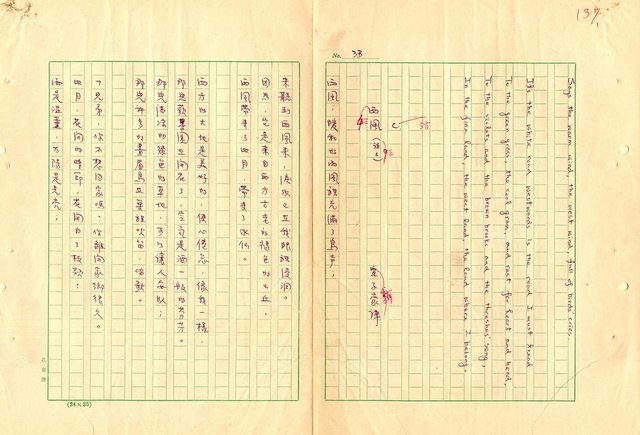 137
No. 38
Says the warm wind, the west wind, full of birds' cries.
It's the white road westwards is the road I must tread
To the green grass, the cool grass, and rest for heart and head,
To the violets and the brown brooks and the thrushes' song,
In the fine land, the west land, the land where I belong.
西風
譯
西風，暖和的西風裡充滿了鳥聲；
未聽到西風來，淚水已在我眼裡浸潤。
因為，它是來自西方古老的褐色的山丘，
西風帶來了四月，帶來了水仙。
西方的大地是美好的，使心倦怠，像我一樣，
那兒蘋果園正開花了，空氣是酒一般的芬芳。
那兒有涼涼的綠色的草地，可以讓人安臥；
那兒許多的畫眉鳥正巢裡吹笛，唱歌。
「兄弟，你不想回家嗎？你離開家鄉很久。
四月，花開的時節，花開白了枝頭；
(24×25)